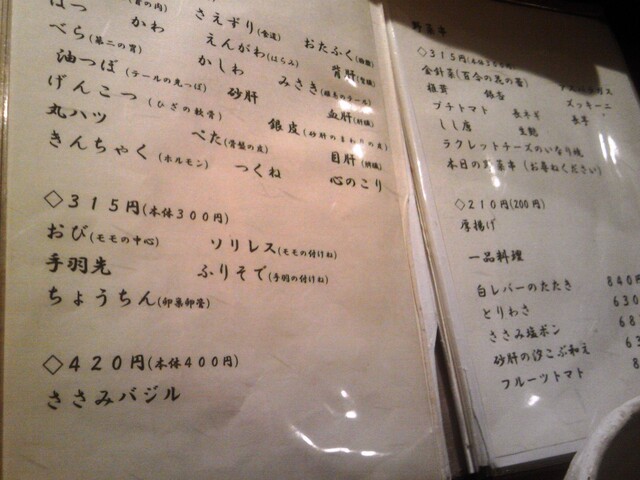 はつ
かわ さえずり(食道) おたふく(胸腺)
べら(第二の胃) えんがわ(はらみ) 背肝(腎臓)
油つぼ(テールの先っぽ) かしわ みさき(雌もものテール)
げんこつ(ひざの軟骨) 砂肝 血肝(肝臓)
丸ハツ ぺた(背盤の皮) 銀皮(砂肝のまわりの皮) 目肝(脾臓)
きんちゃく(ホルモン) つくね 心のこり
◇315円(本体300円)
おび(モモの中心) ソリレス(モモの付けね)
手羽先 ふりそで(手羽の付けね)
ちょうちん(卵巣卵管)
◇420円(本体400円)
ささみバジル
野菜串
◇315円(本体300円)
金針菜(百合の花の蕾) アスパラガス
椎茸 銀杏 ズッキーニ
プチトマト 長ネギ 長芋
しし唐 生麩
ラクレットチーズのいなり焼
本日の野菜串(お尋ねください)
◇210円(200円)
厚揚げ
一品料理
白レバーのたたき 840円
とりわさ 630
ささみ塩ポン 68
砂肝の汐こぶ和え 63
フルーツトマト 8